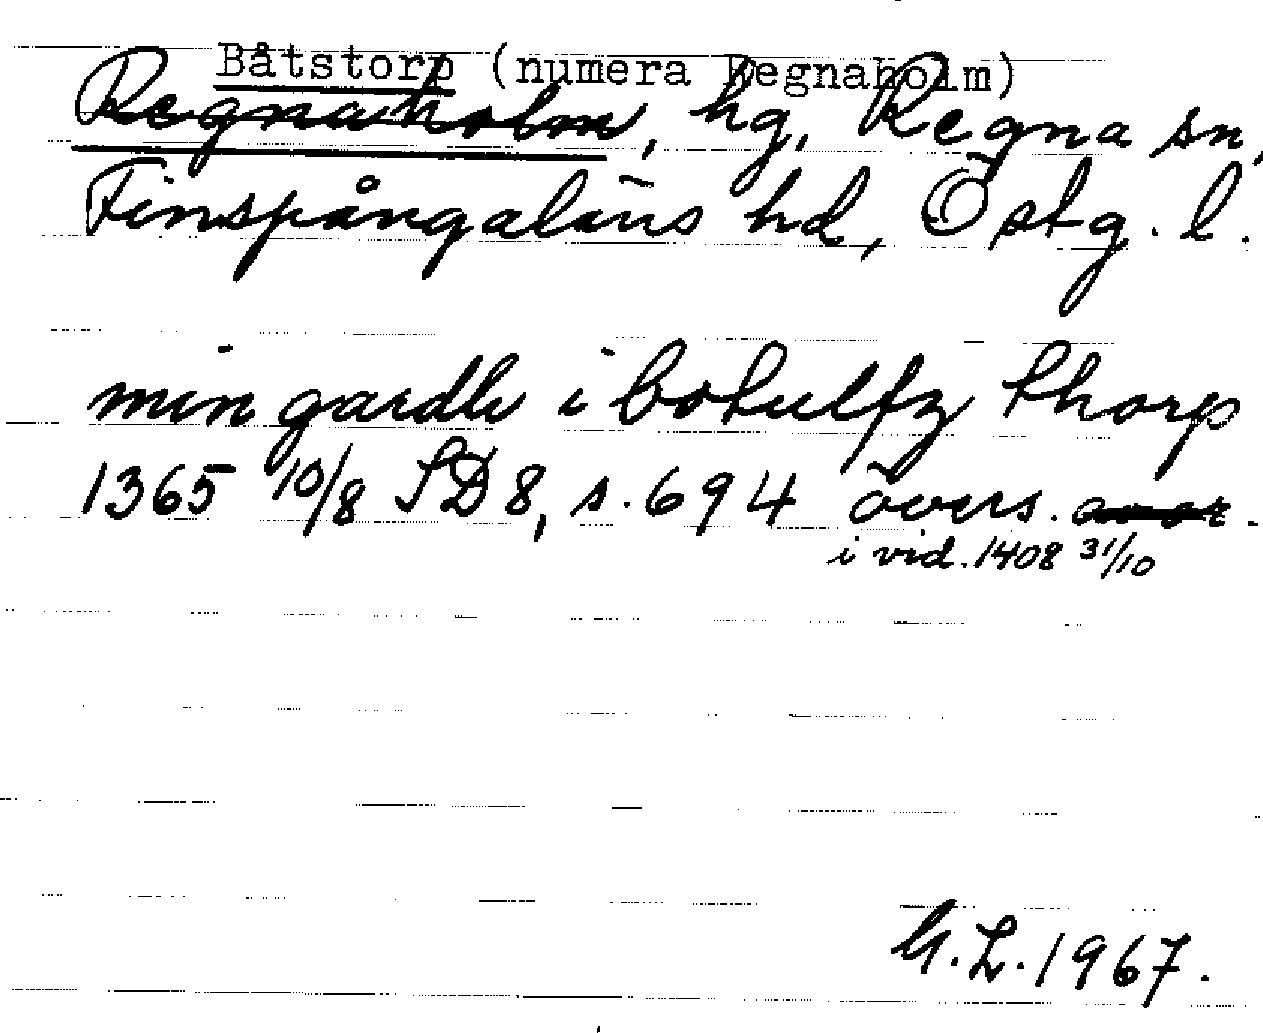 Båtstorp (numera Regnaholm)
Regnaholm, hg, Regna sn,
Finspångaläns hd, Östg. l.
min gardh i botulfz thorp
1365 10/8 SD 8, s. 694 övers.
i vid. 1408 31/10
G.L. 1967.